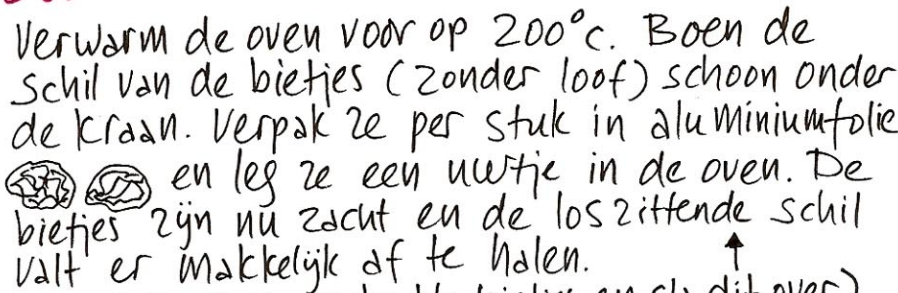 Verwarm de oven voor op 200°C. Boen de
schil van de bietjes (zonder loof) schoon onder
de kraan. Verpak ze per stuk in aluminiumfolie
en leg ze een uurtje in de oven. De
bietjes zijn nu zacht en de loszittende schil
valt er makkelijk af te halen.